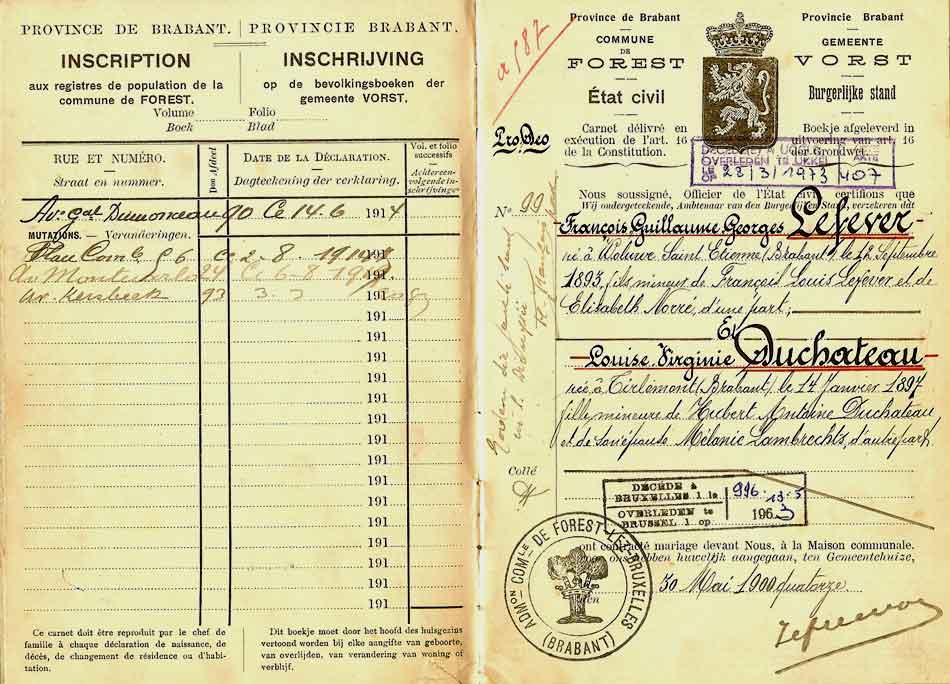 PROVINCE DE BRABANT. | PROVINCIE BRABANT.
INSCRIPTION
aux registres de population de la
commune de FOREST.
INSCHRIJVING
op de bevolkingsboeken der
gemeente VORST.
Volume
Boek
Folio
Blad
RUE ET NUMÉRO.
Straat en nummer.
DATE DE LA DÉCLARATION.
Dagteekening der verklaring.
Vol. et folio
successifs
Achtereen-
volgende in-
schrijvinge
Av. Gal Dumonceau 90 Ce 14.6 1914
MUTATIONS. — Veranderingen.
Ce 2-8 191
24 Ce 6-8 191
av. Kersbeek 93 3. 191
191
191
191
191
191
191
191
191
191
191
191
191
191
Ce carnet doit être reproduit par le chef de
famille à chaque déclaration de naissance, de
décès, de changement de résidence ou d'habi-
tation.
Dit boekje moet door het hoofd des huisgezins
vertoond worden bij elke aangifte van geboorte,
van overlijden, van verandering van woning of
verblijf.
a 587
Pro Deo
Province de Brabant
COMMUNE
DE
FOREST
État civil
Carnet délivré en
exécution de l'art. 16
de la Constitution.
Provincie Brabant
GEMEENTE
VORST
Burgerlijke stand
Boekje afgeleverd in
uitvoering van art. 16
der Grondwet.
DECEDE A UCCLE
OVERLEDEN TE UKKEL
LE
OP 28/3/1973
AKTE
407
N° 99
Nous soussigné, Officier de l'État civil certifions que
Wij ondergeteekende, Ambtenaar van den Burgerlijken Stand, verzekeren dat
François Guillaume Georges Lefever
né à Woluwe Saint Etienne (Brabant), le 12 Septembre
1893, fils mineur de François Louis Lefever et de
Elisabeth Morré, d'une part;
Et
Louise Virginie Duchateau
née à Tirlemont (Brabant), le 14 Janvier 1897
fille mineure de Hubert Antoine Duchateau
et de son épouse Mélanie Lambrechts, d'autre part
Collé
DÉCÉDÉ à
BRUXELLES 1 le
OVERLEDEN te
BRUSSEL 1 op
996
13-5
1963
ont contracté mariage devant Nous, à la Maison communale.
hebben huwelijk aangegaan, ten Gemeentehuize,
30 Mai 1900 quatorze
den
ADMon COMLE DE FOREST-LEZ-BRUXELLES
(BRABANT)